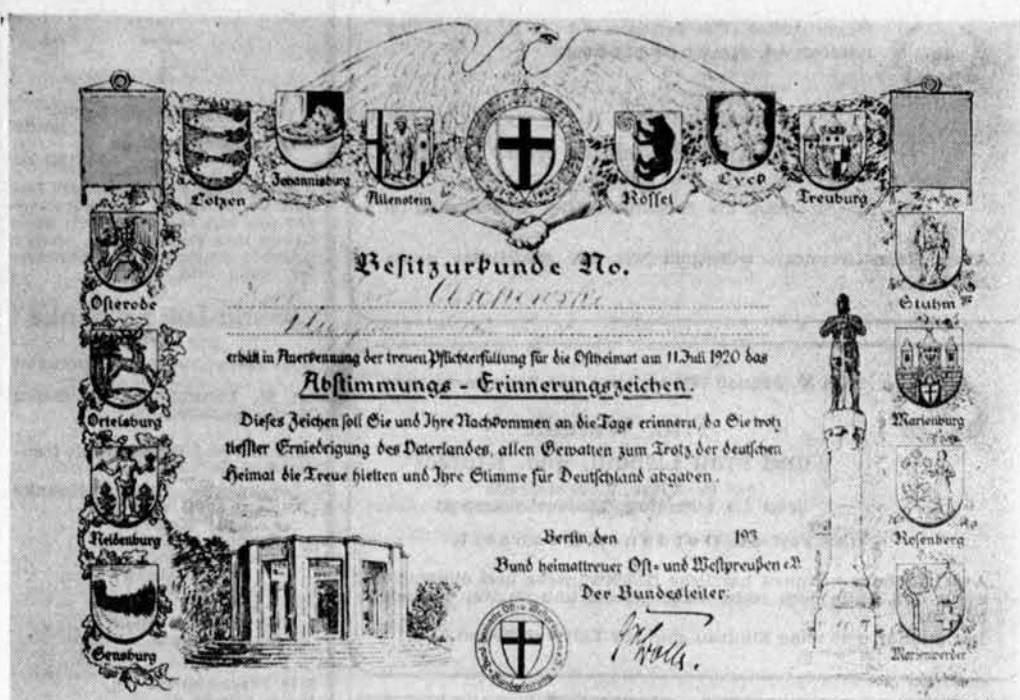 Lötzen
Johannisburg
Allenstein
Rössel
Lyck
Treuburg
Osterode
Ortelsburg
Neidenburg
Sensburg
Stuhm
Marienburg
Rosenberg
Marienwerder
Besitzurkunde No.
erhält in Anerkennung der treuen Pflichterfüllung für die Ostheimat am 11. Juli 1920 das
Abstimmungs - Erinnerungszeichen.
Dieses Zeichen soll Sie und Ihre Nachkommen an die Tage erinnern, da Sie trotz
tiefster Erniedrigung des Vaterlandes, allen Gewalten zum Trotz, der deutschen
Heimat die Treue hielten und Ihre Stimme für Deutschland abgaben.
Berlin, den 193
Bund heimattreuer Ost- und Westpreußen e.V.
Der Bundesleiter: